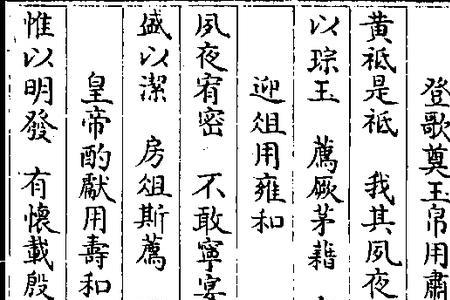 登歌奠玉帛用肅
黄祗是祗　我其夙夜
以琮玉　薦厥茅藉
迎俎用雍和
夙夜宥密　不敢寧宴
盛以潔　房俎斯薦
皇帝酌獻用壽和
惟以明發　有懷載殷